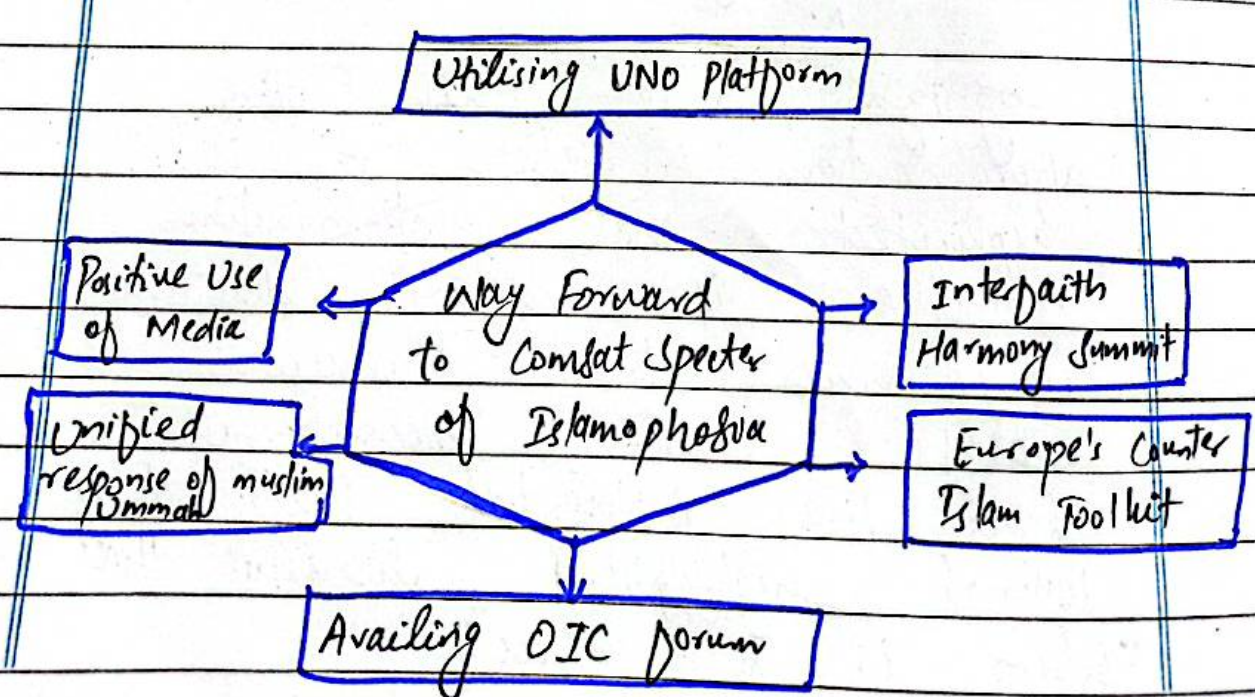 Utilising UNO Platform
Positive Use
of Media
Way Forward
to Combat Specter
of Islamophobia
Interfaith
Harmony Summit
Unified
response of muslim
Ummah
Europe's Counter
Islam Toolkit
Availing OIC forum